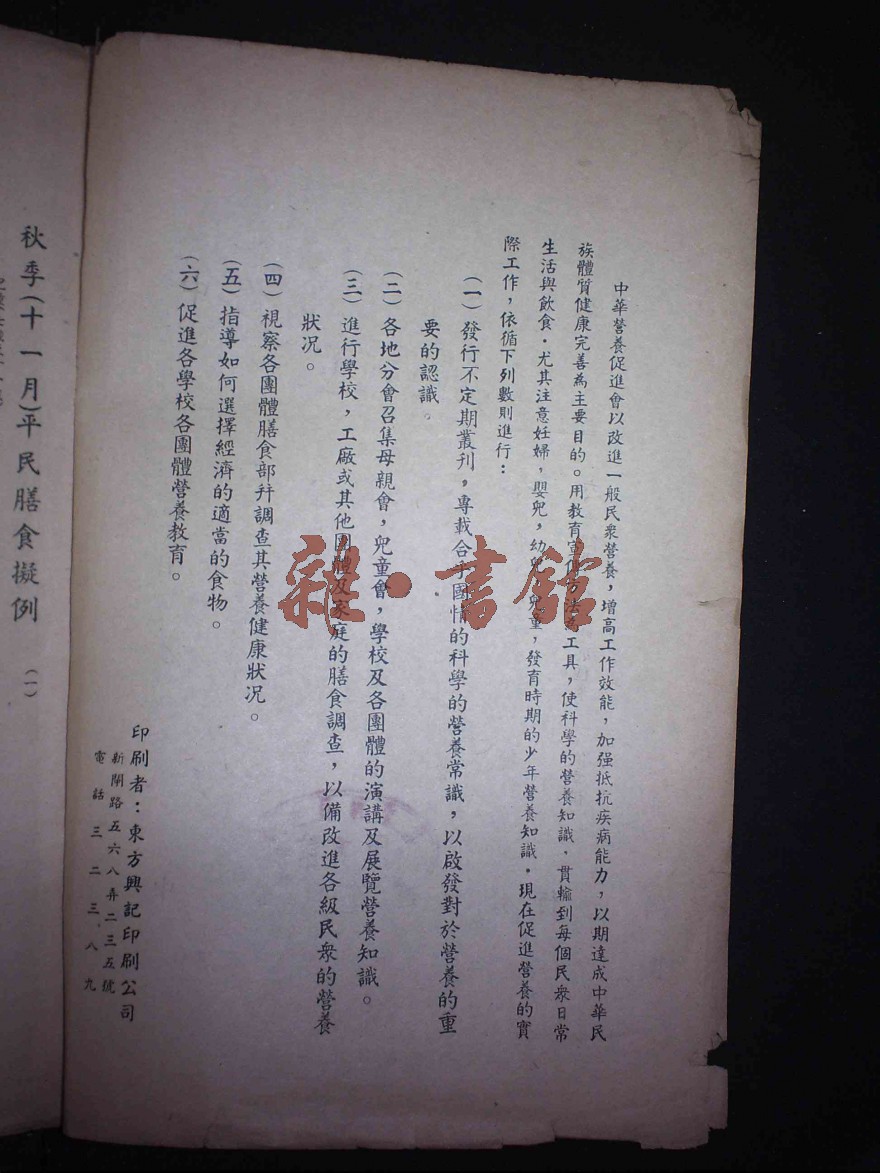 中華營養促進會以改進一般民衆營養，增高工作效能，加强抵抗疾病能力，以期達成中華民
族體質健康完善為主要目的。用教育宣傳方法為工具，使科學的營養知識．貫輸到每個民衆日常
生活與飲食．尤其注意妊婦，嬰兒，幼兒，兒童，發育時期的少年營養知識．現在促進營養的實
際工作，依循下列數則進行：
（一）發行不定期叢刊，專載合乎國情的科學的營養常識，以啟發對於營養的重
要的認識。
（二）各地分會召集母親會，兒童會，學校及各團體的演講及展覽營養知識。
（三）進行學校，工廠或其他團體及家庭的膳食調查，以備改進各級民衆的營養
狀况。
（四）視察各團體膳食部幷調查其營養健康狀况。
（五）指導如何選擇經濟的適當的食物。
（六）促進各學校各團體營養教育。
印刷者：東方興記印刷公司
新閘路五六八弄二三五號
電話三二三八九
秋季（十一月）平民膳食擬例（一）
雜·書館